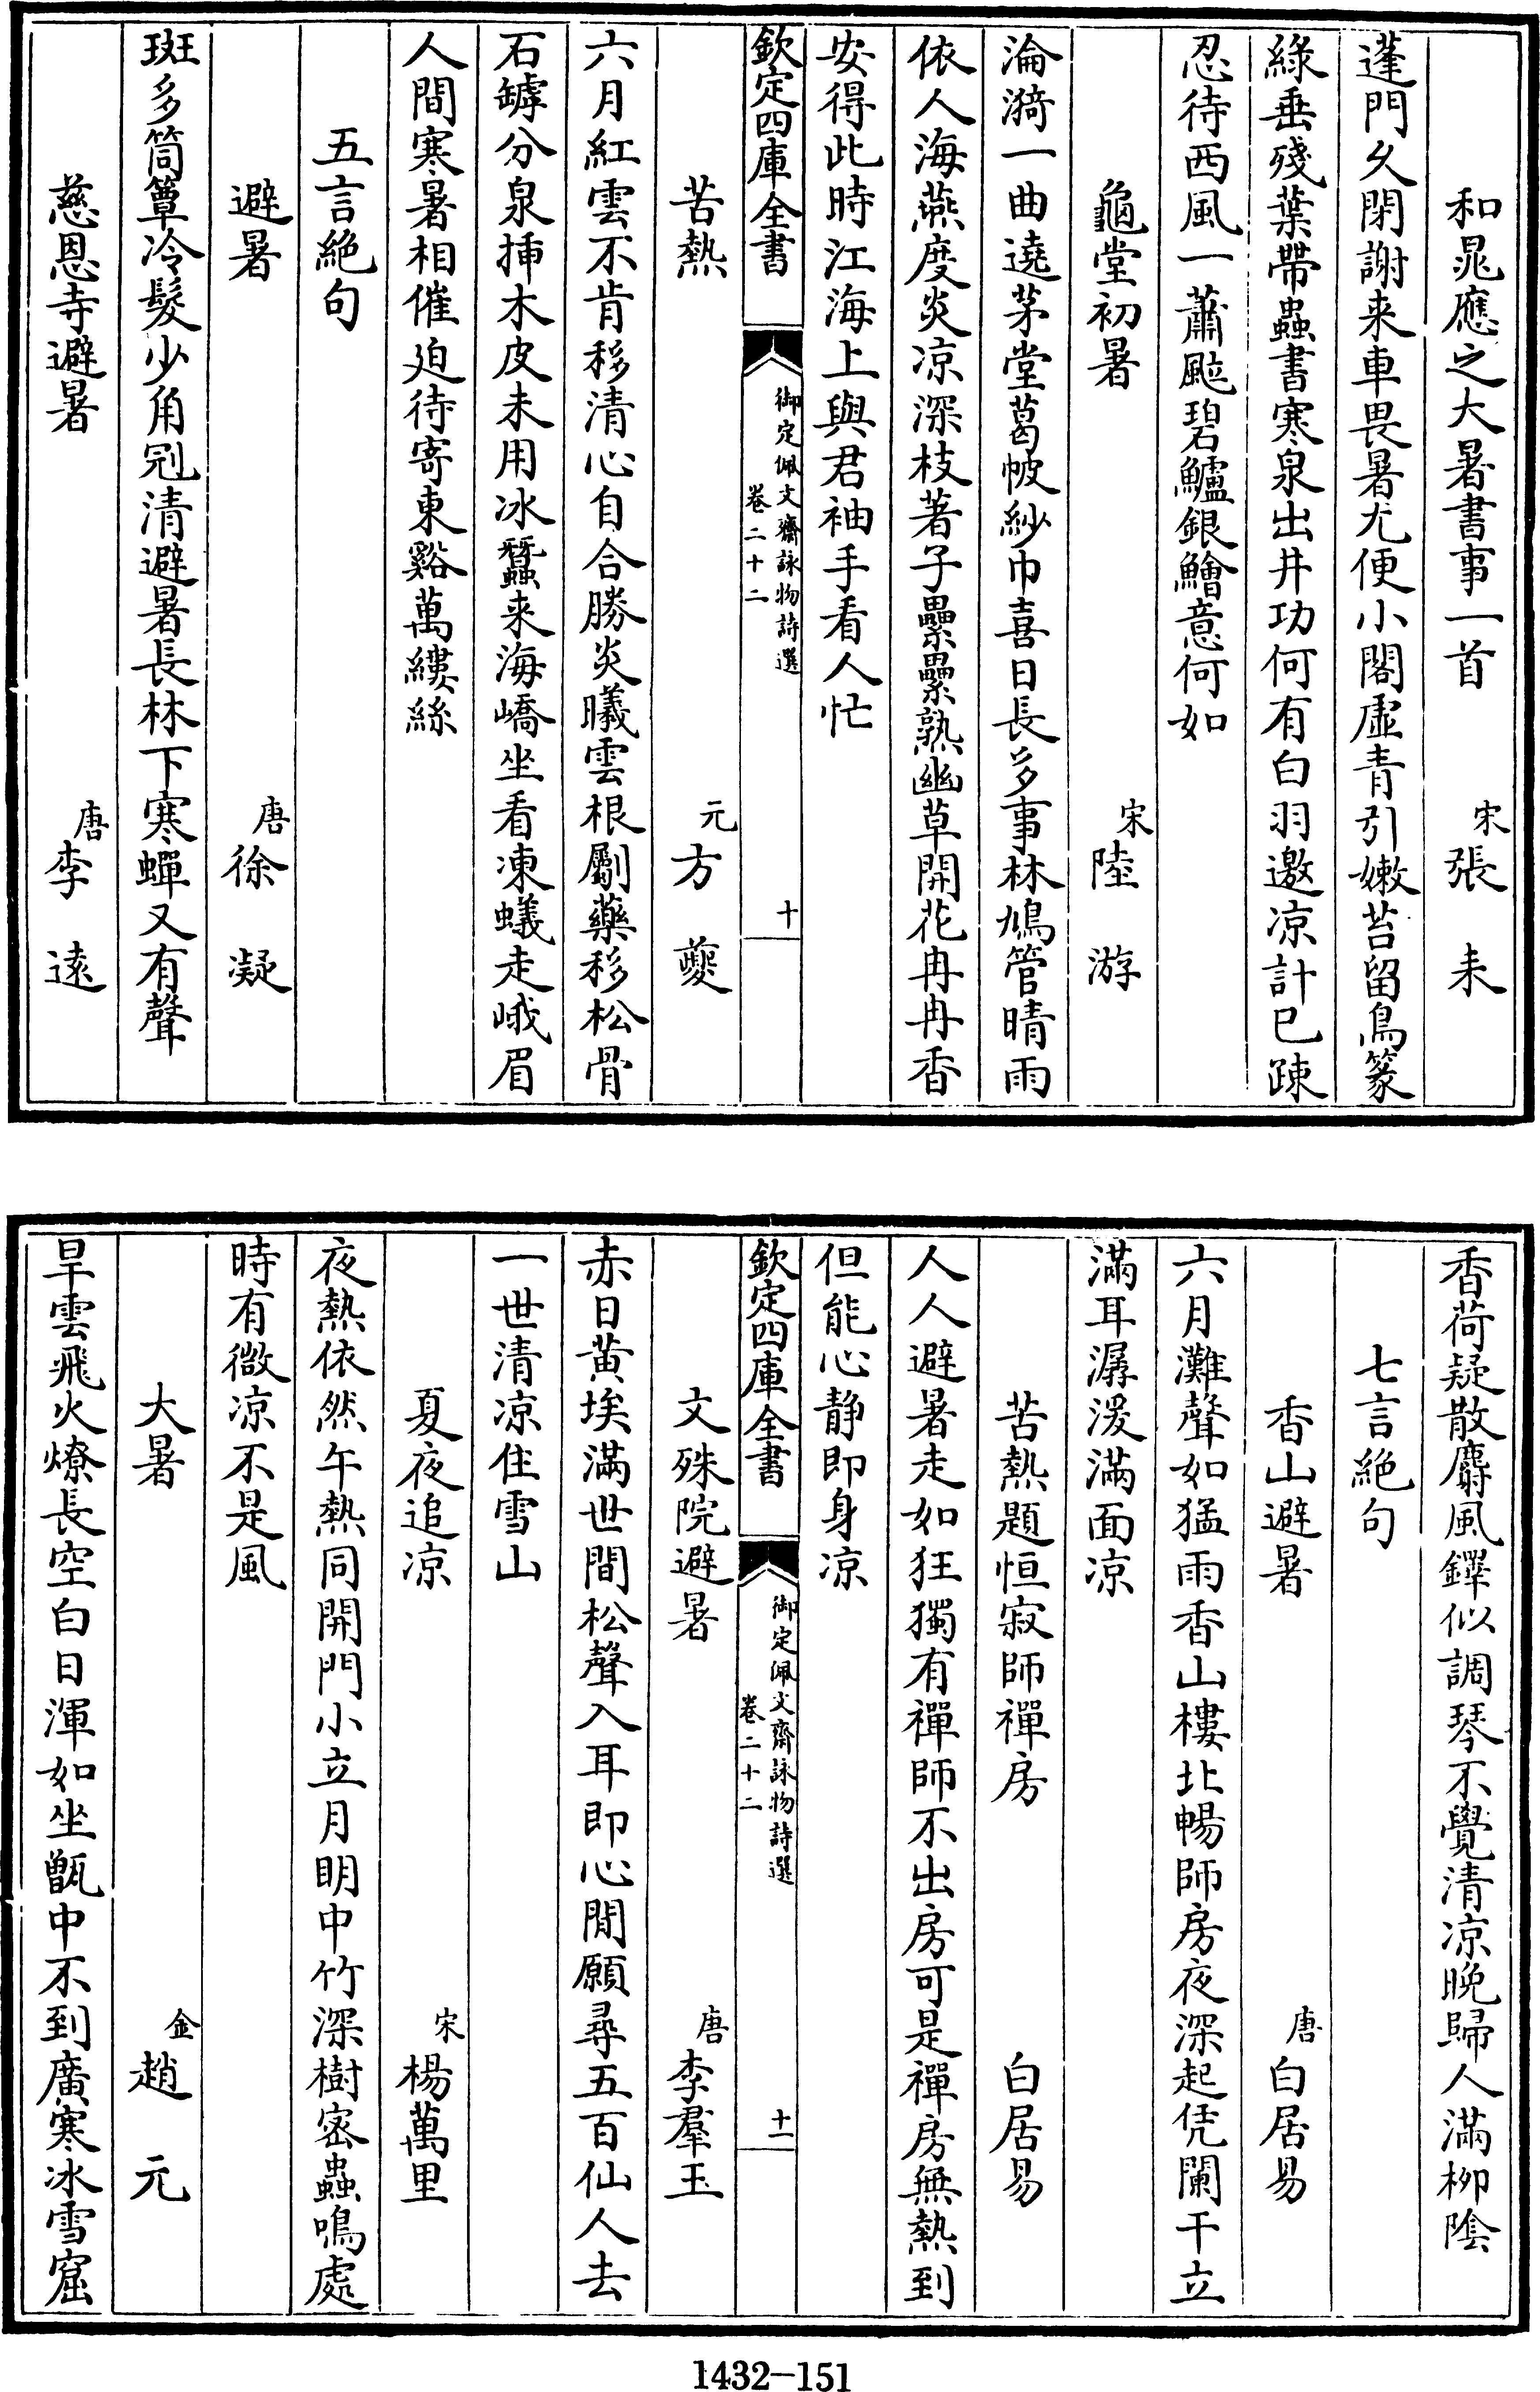 和晁應之大暑書事一首　宋張耒
蓬門久閉謝来車畏暑尤便小閣虛青引嫩苔留鳥篆
綠垂殘葉帶蟲書寒泉出井功何有白羽邀凉計已疎
忍待西風一蕭颭碧鱸銀鱠意何如
龜堂初暑　宋陸游
淪漪一曲遶茅堂葛帔紗巾喜日長多事林鳩管晴雨
依人海燕度炎凉深枝著子纍纍熟幽草開花冉冉香
安得此時江海上與君袖手看人忙
欽定四庫全書　御定佩文齋詠物詩選卷二十二　十
苦熱　元方夔
六月紅雲不肯移清心自合勝炎曦雲根斸藥移松骨
石罅分泉揷木皮未用冰蠶来海嶠坐看凍蟻走峨眉
人間寒暑相催廹待寄東谿萬縷絲
五言絕句
避暑　唐徐凝
斑多筒簟冷髮少角冠清避暑長林下寒蟬又有聲
慈恩寺避暑　唐李遠
香荷疑散麝風鐸似調琴不覺清凉晚歸人滿柳陰
七言絕句
香山避暑　唐白居易
六月灘聲如猛雨香山樓北暢師房夜深起凭闌干立
滿耳潺湲滿面凉
苦熱題恒寂師禪房　白居易
人人避暑走如狂獨有禪師不出房可是禪房無熱到
但能心静即身凉
欽定四庫全書　御定佩文齋詠物詩選卷二十二　十一
文殊院避暑　唐李羣玉
赤日黄埃滿世間松聲入耳即心閒願尋五百仙人去
一世清凉住雪山
夏夜追凉　宋楊萬里
夜熱依然午熱同開門小立月明中竹深樹密蟲鳴處
時有微凉不是風
大暑　金趙元
旱雲飛火燎長空白日渾如坐甑中不到廣寒冰雪窟
1432-151